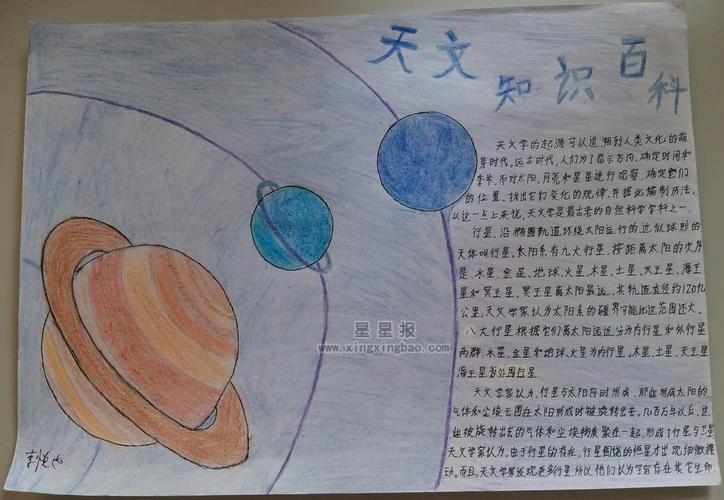 天文
知识百科
天文学的起源可以追溯到人类文化的萌
芽时代。远古时代，人们为了指示方向、确定时间和
季节，而对太阳、月亮和星星进行观察，确定它们
的位置、找出它们变化的规律，并据此编制历法，
从这一点上来说，天文学是最古老的自然科学学科之一。
行星，沿椭圆轨道环绕太阳运行的、近似球形的
天体叫行星。太阳系有九大行星，按距离太阳的次序
是水星、金星、地球、火星、木星、土星、天王星、海王
星和冥王星，冥王星离太阳最远，其轨道直径约120亿
公里，天文学家认为太阳系的疆界可能比这范围还大。
八大行星根据它们离太阳远近分为内行星和外行星
两群，水星、金星和地球、火星为内行星，木星、土星、天王星
海王星为外围行星
天文学家认为，行星与太阳同时形成，那些形成太阳的
气体和尘埃云团在太阳形成时被旋转出去。几百万年以后，这
些被旋转出去的气体和尘埃物质聚在一起，形成了行星与卫星
天文学家认为，由于行星的存在，行星围绕的恒星才出现细微摆
动。而且，天文学家发现更多行星，所以他们认为宇宙存在其它生命
星星报
www.xingxingbao.com